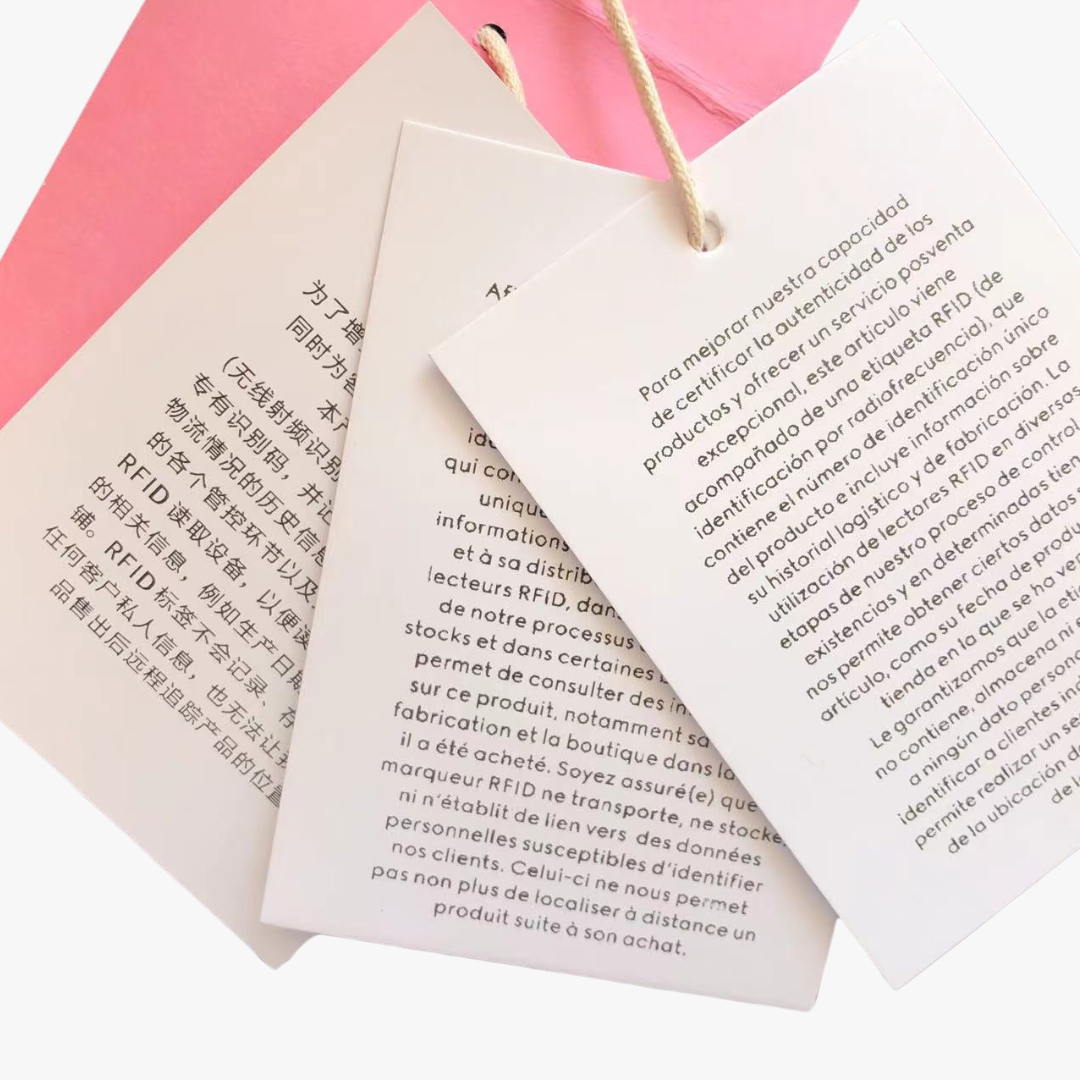 为了增
同时为
本产
(无线射频识别
专有识别码，并
物流情况的历史信息
的各个管控环节以及
RFID 读取设备，以便
的相关信息，例如生产日期
铺。RFID 标签不会记录、存
任何客户私人信息，也无法让我
品售出后远程追踪产品的位置
qui
unique
informations
et à sa distrib
lecteurs RFID, dans
de notre processus
stocks et dans certaines
permet de consulter des in
sur ce produit, notamment sa
fabrication et la boutique dans la
il a été acheté. Soyez assuré(e) que
marqueur RFID ne transporte, ne stocke,
ni n'établit de lien vers des données
personnelles susceptibles d'identifier
nos clients. Celui-ci ne nous permet
pas non plus de localiser à distance un
produit suite à son achat.
Para mejorar nuestra capacidad
de certificar la autenticidad de los
productos y ofrecer un servicio posventa
excepcional, este artículo viene
acompañado de una etiqueta RFID (de
identificación por radiofrecuencia), que
contiene el número de identificación único
del producto e incluye información sobre
su historial logístico y de fabricación. La
utilización de lectores RFID en diversas
etapas de nuestro proceso de control
existencias y en determinadas tien
nos permite obtener ciertos datos
artículo, como su fecha de produ
tienda en la que se ha ve
Le garantizamos que la eti
no contiene, almacena ni
a ningún dato persona
identificar a clientes in
permite realizar un se
de la ubicación d
de l